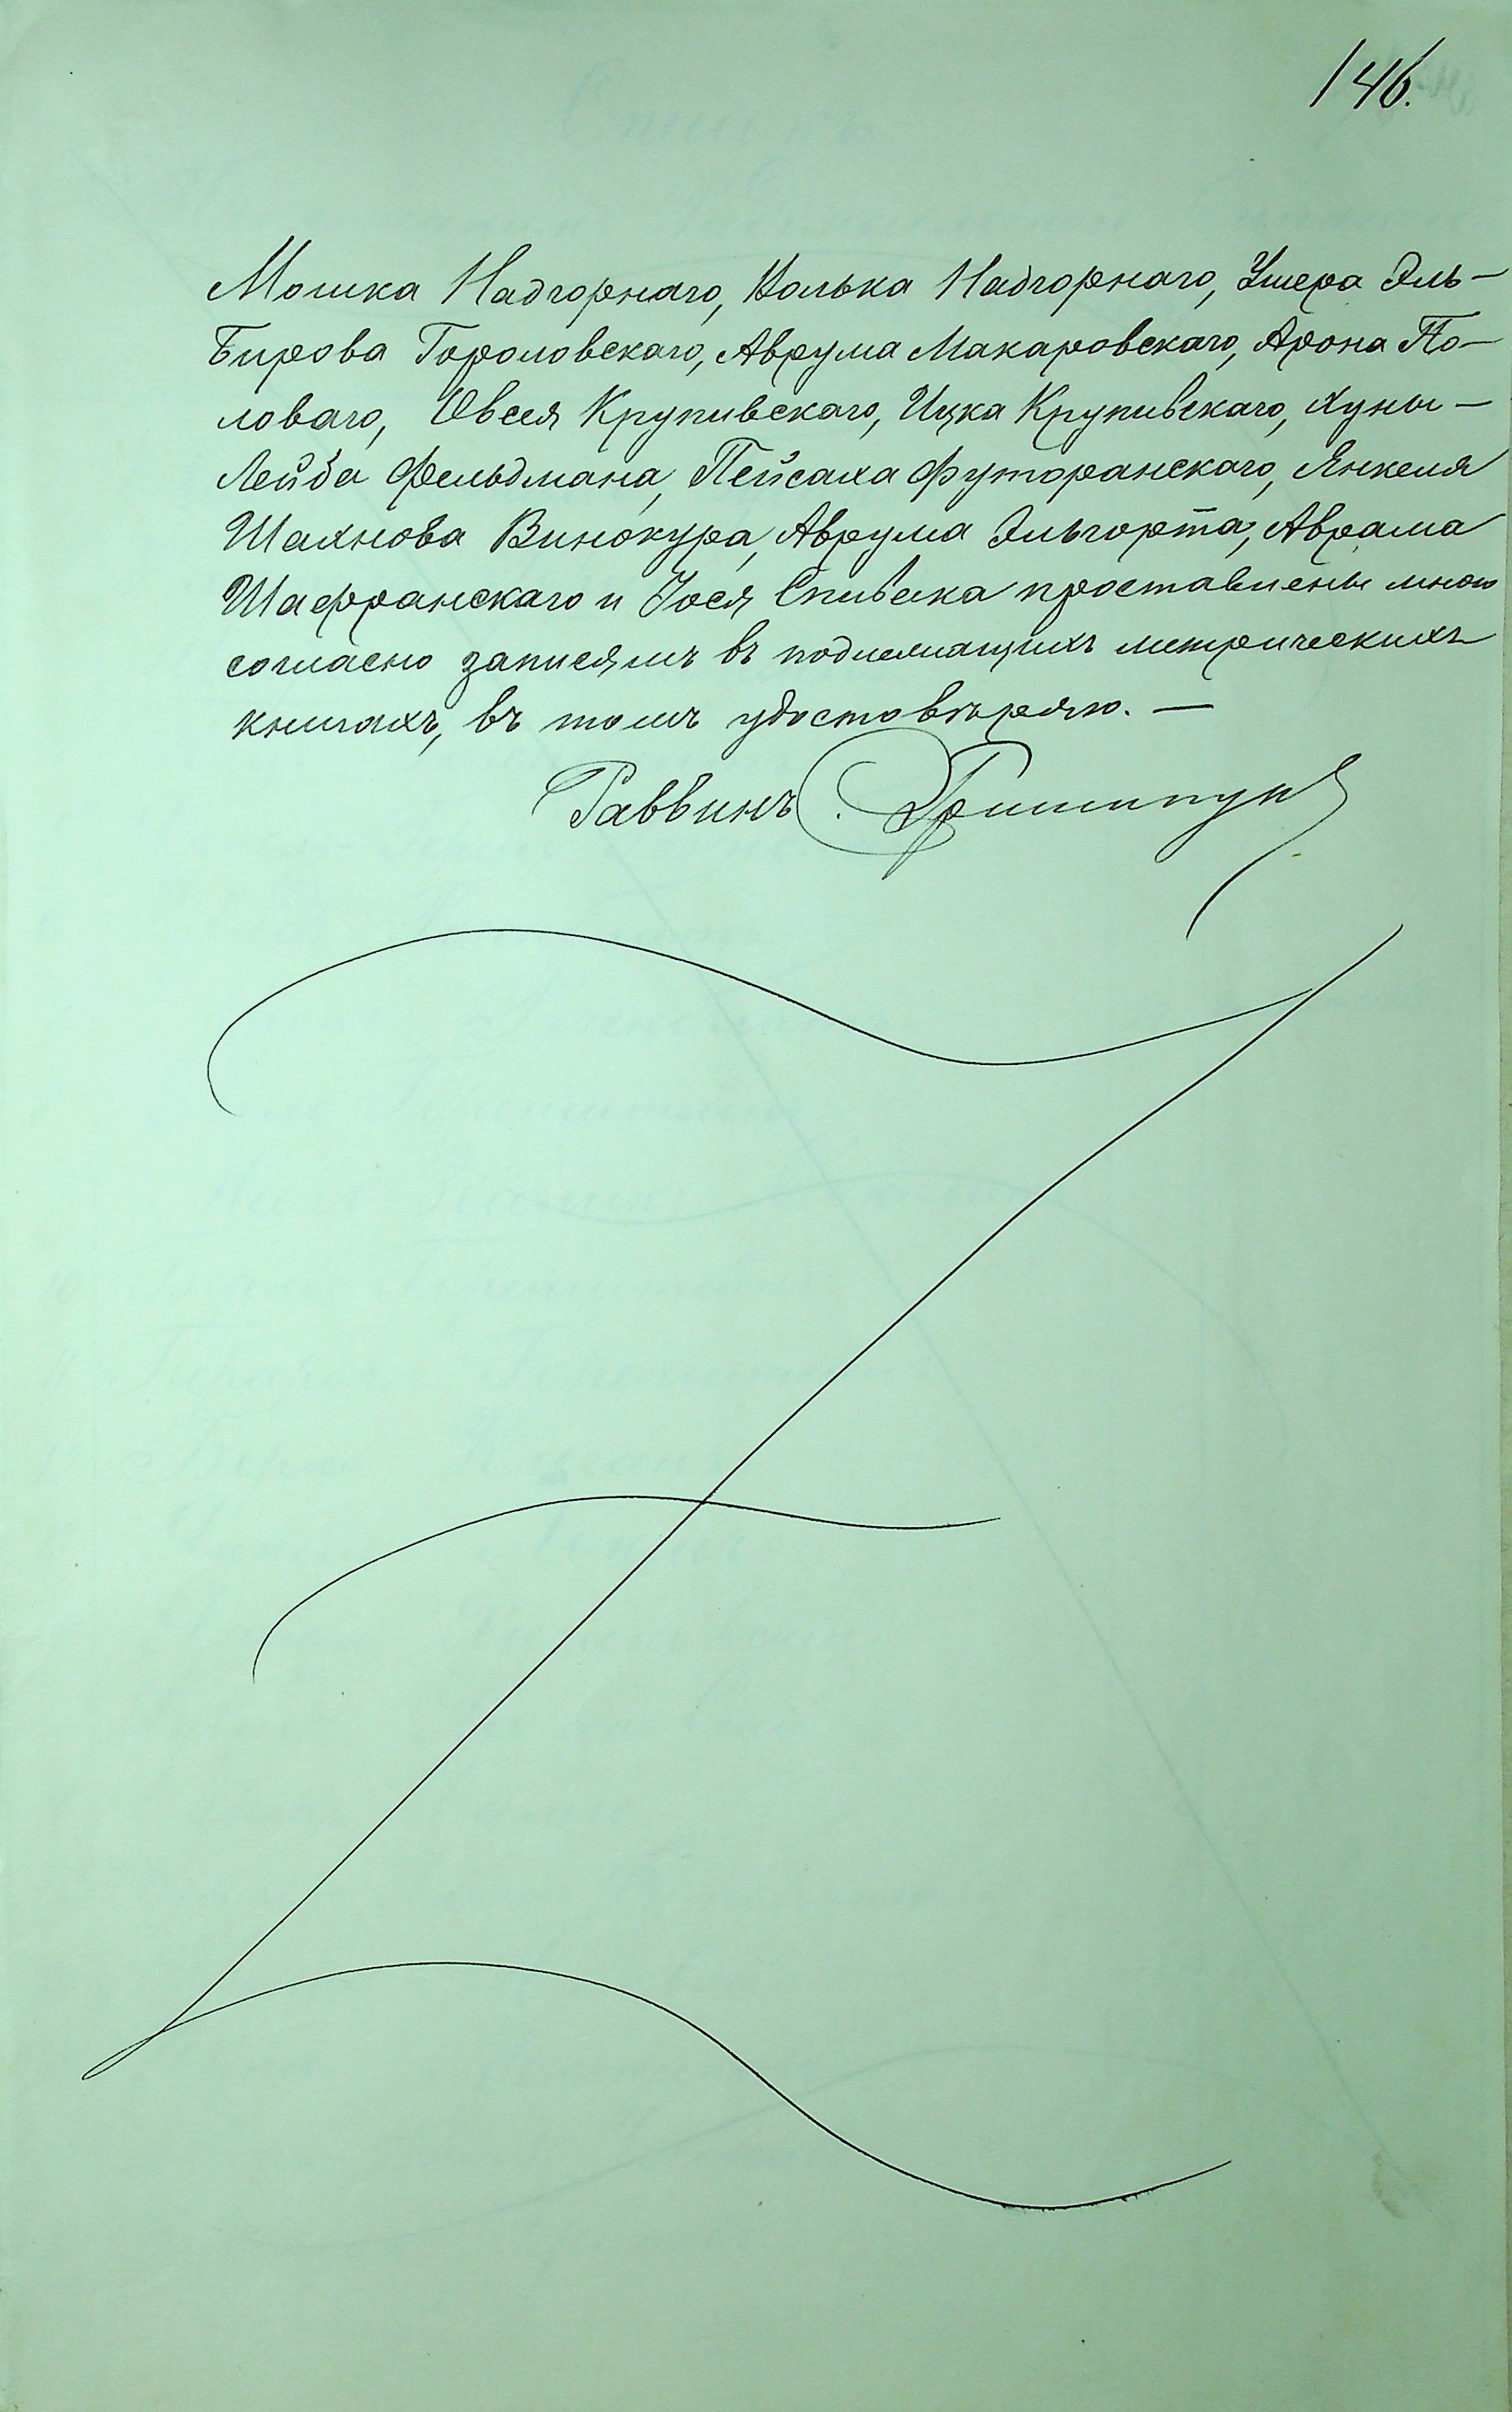 146.
Мошка Надгорнаго, Волька Надгорнаго, Ушера Эль-
Бирова Гороловскаго, Аврума Макаровскаго, Арона По-
ловаго, Овсея Крупивскаго, Ицка Крупивскаго, Хуны-
Лейба Фельдмана, Пейсаха Футоранскаго, Янкеля
Шахнова Винокура, Аврума Эльгорта, Аврама
Шафранскаго и Іося Спивака проставлены мною
согласно записямъ въ подлежащихъ метрическихъ
книгахъ, въ томъ удостовѣряю. —
Раввинъ